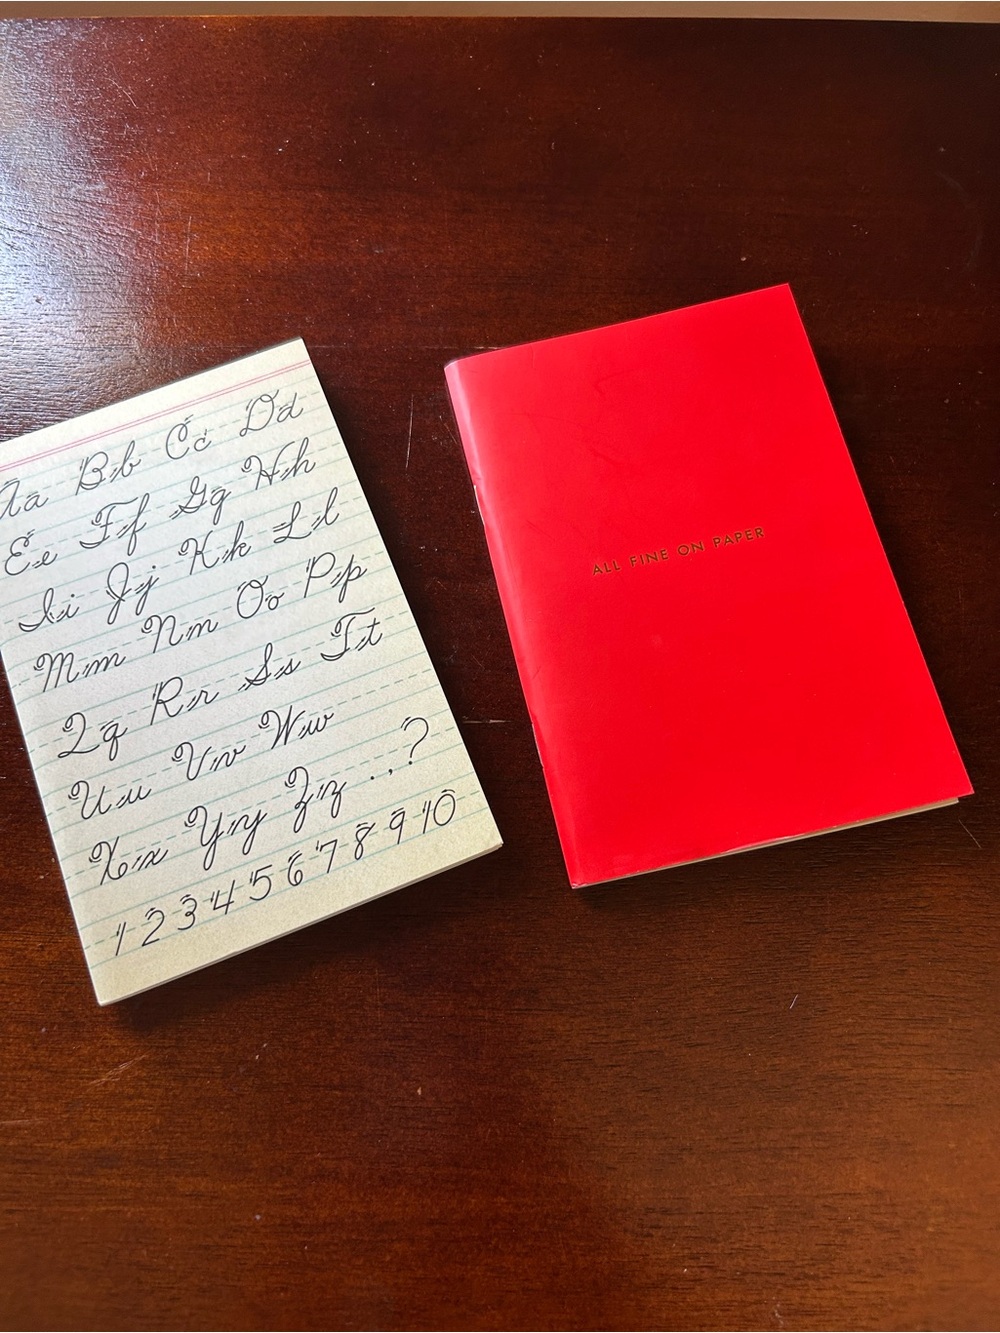 Aa Bb Cc Dd
Ee Ff Gg Hh
Ii Jj Kk Ll
Mm Nn Oo Pp
Qq Rr Ss Tt
Uu Vv Ww
Xx Yy Zz . , ?
1 2 3 4 5 6 7 8 9 10
ALL FINE ON PAPER